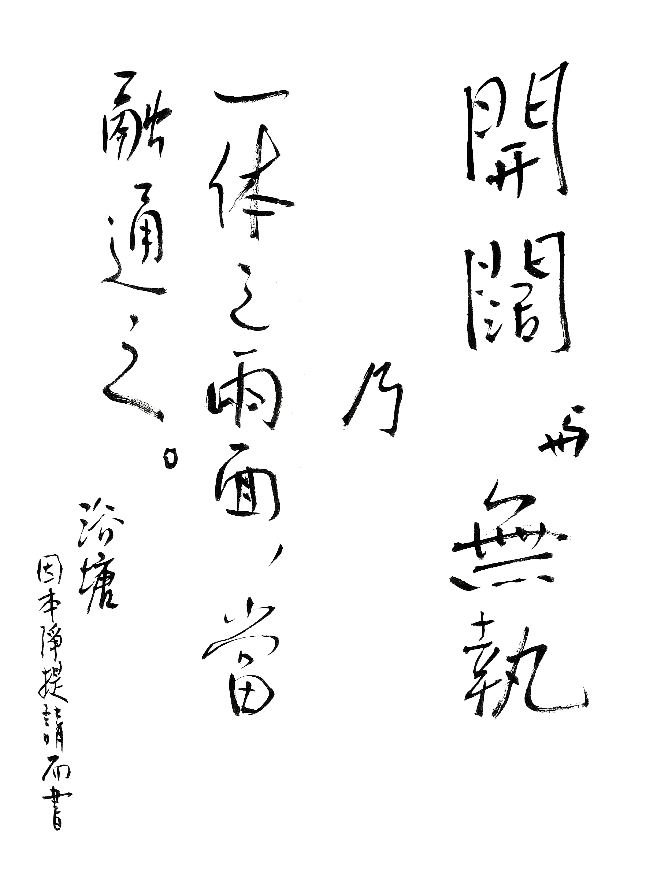 開闊与無執
乃
一体之兩面，當
融通之。
浴塘
因本淨提請而書